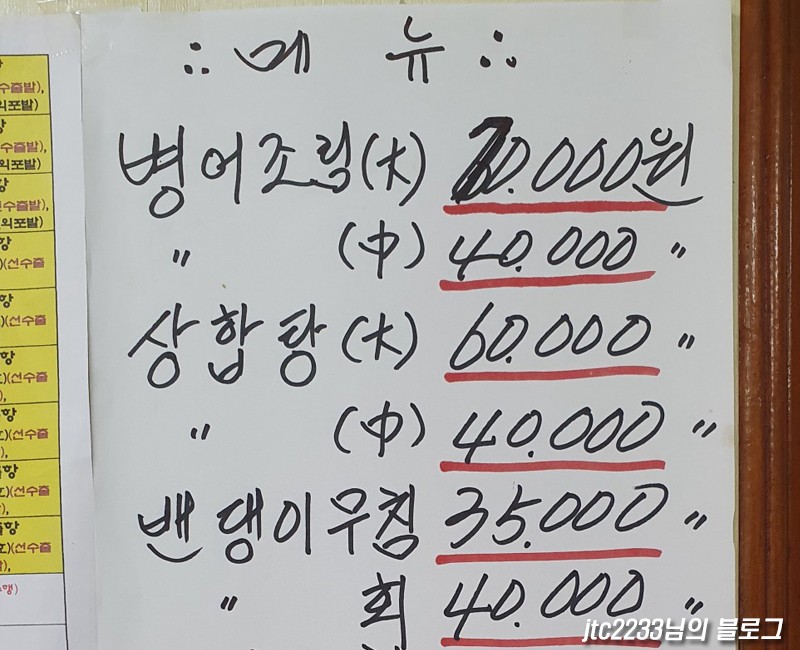 ∴ 메 뉴 ∴
병어조림(大) 70.000원
〃 (中) 40.000 〃
상합탕 (大) 60.000 〃
〃 (中) 40.000 〃
밴댕이무침 35.000 〃
〃 회 40.000 〃
수출발),
의포발)
항
수출발),
의포발)
항
선수출발),
의포발)
항
(선수출
항
(선수출
항
(선수출
항
(선수출
항
(선수출
항
(선수출
jtc2233님의 블로그